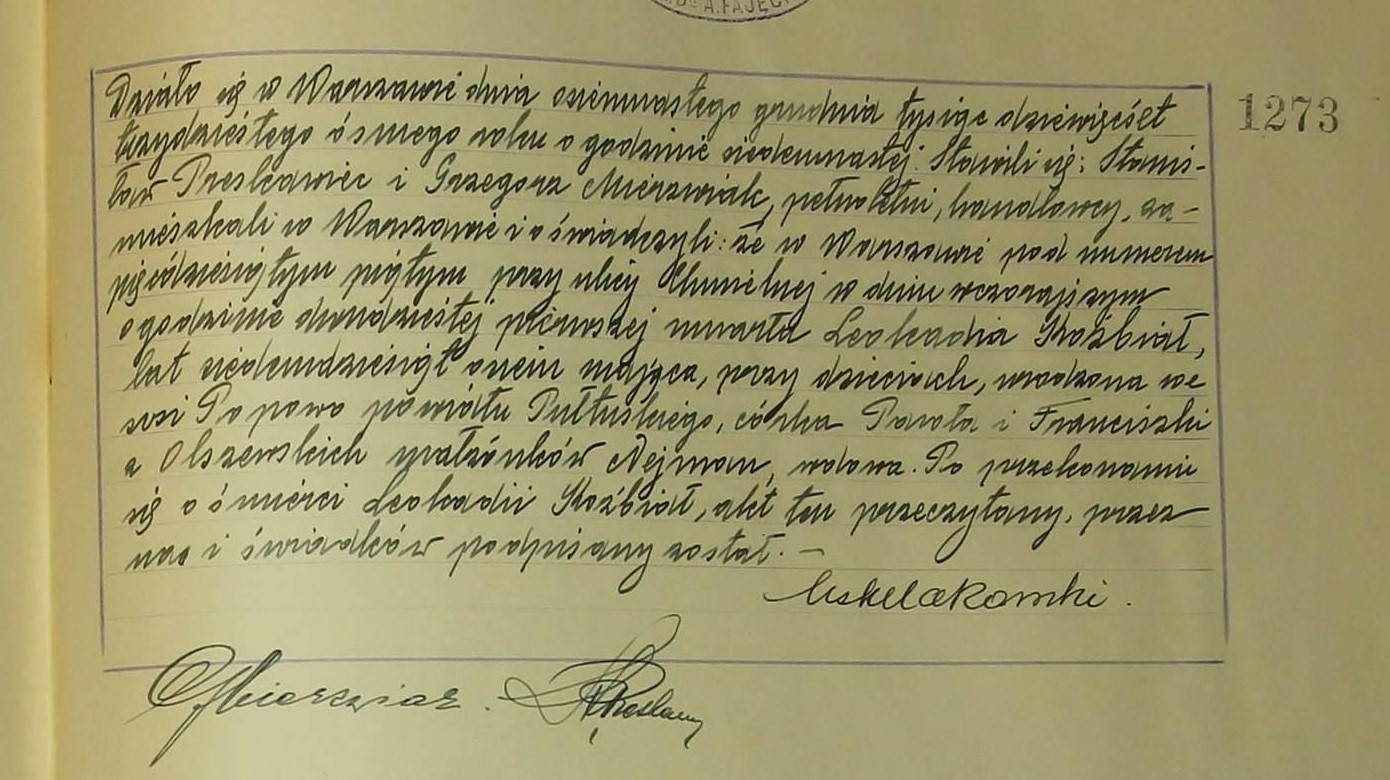 Działo się w Warszawie dnia osiemnastego grudnia tysiąc dziewięćset
trzydziestego ósmego roku o godzinie siedemnastej. Stawili się: Stanis-
ław i Grzegorz Mierzwiak, pełnoletni, handlowcy, za-
mieszkali w Warszawie i oświadczyli: że w Warszawie pod numerem
pięćdziesiątym piątym przy ulicy Chmielnej w dniu wczorajszym
o godzinie dwudziestej pierwszej umarła Leokadia Koźbiał,
lat siedemdziesiąt osiem mająca, przy dzieciach, urodzona we
wsi Popowo powiatu Pułtuskiego, córka Pawła i Franciszki
z Olszewskich małżonków Nejman, wdowa. Po przekonaniu
się o śmierci Leokadii Koźbiał, akt ten przeczytany, przez
nas i świadków podpisany został. —
1273
GMierzwiak.